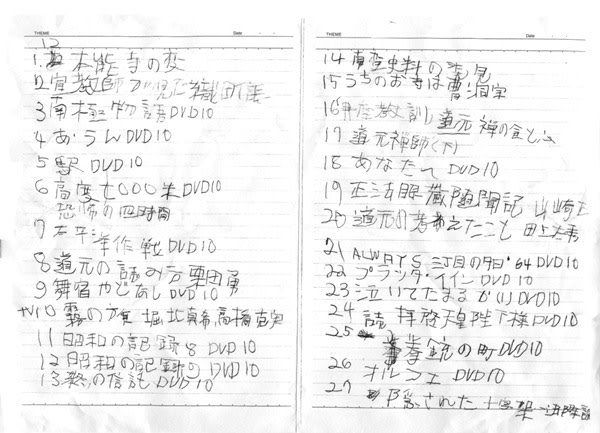 THEME Date
12
1. 本能寺の変
2 宣教師が見た織田信長
3 南極物語 DVD10
4 あ・うん DVD10
5 駅 DVD 10
6 高度七〇〇〇米 DVD10
恐怖の四時間
7 太平洋作戦 DVD10
8 道元の読み方 栗田勇
9 舞台やどあし DVD10
10 霧の旗 堀北真希,高橋克実
11 昭和の記録 8 DVD10
12 昭和の記録 9 DVD10
13 終の信託 DVD 10
THEME Date
14 史料の発見
15 うちのお寺は曹洞宗
16 典座教訓 道元禅の食と心
17 道元禅師(下)
18 あなたへ DVD10
19 正法眼蔵随聞記 山崎正
20 道元の考えたこと 田上太秀
21 ALWAYS 三丁目の夕日・64 DVD10
22 ブラッタ・イイン DVD10
23 泣いてたまるか(1) DVD10
24 続 拝啓天皇陛下様 DVD10
25 拳銃の町 DVD10
26 オルフェ DVD10
27 隠された十字架